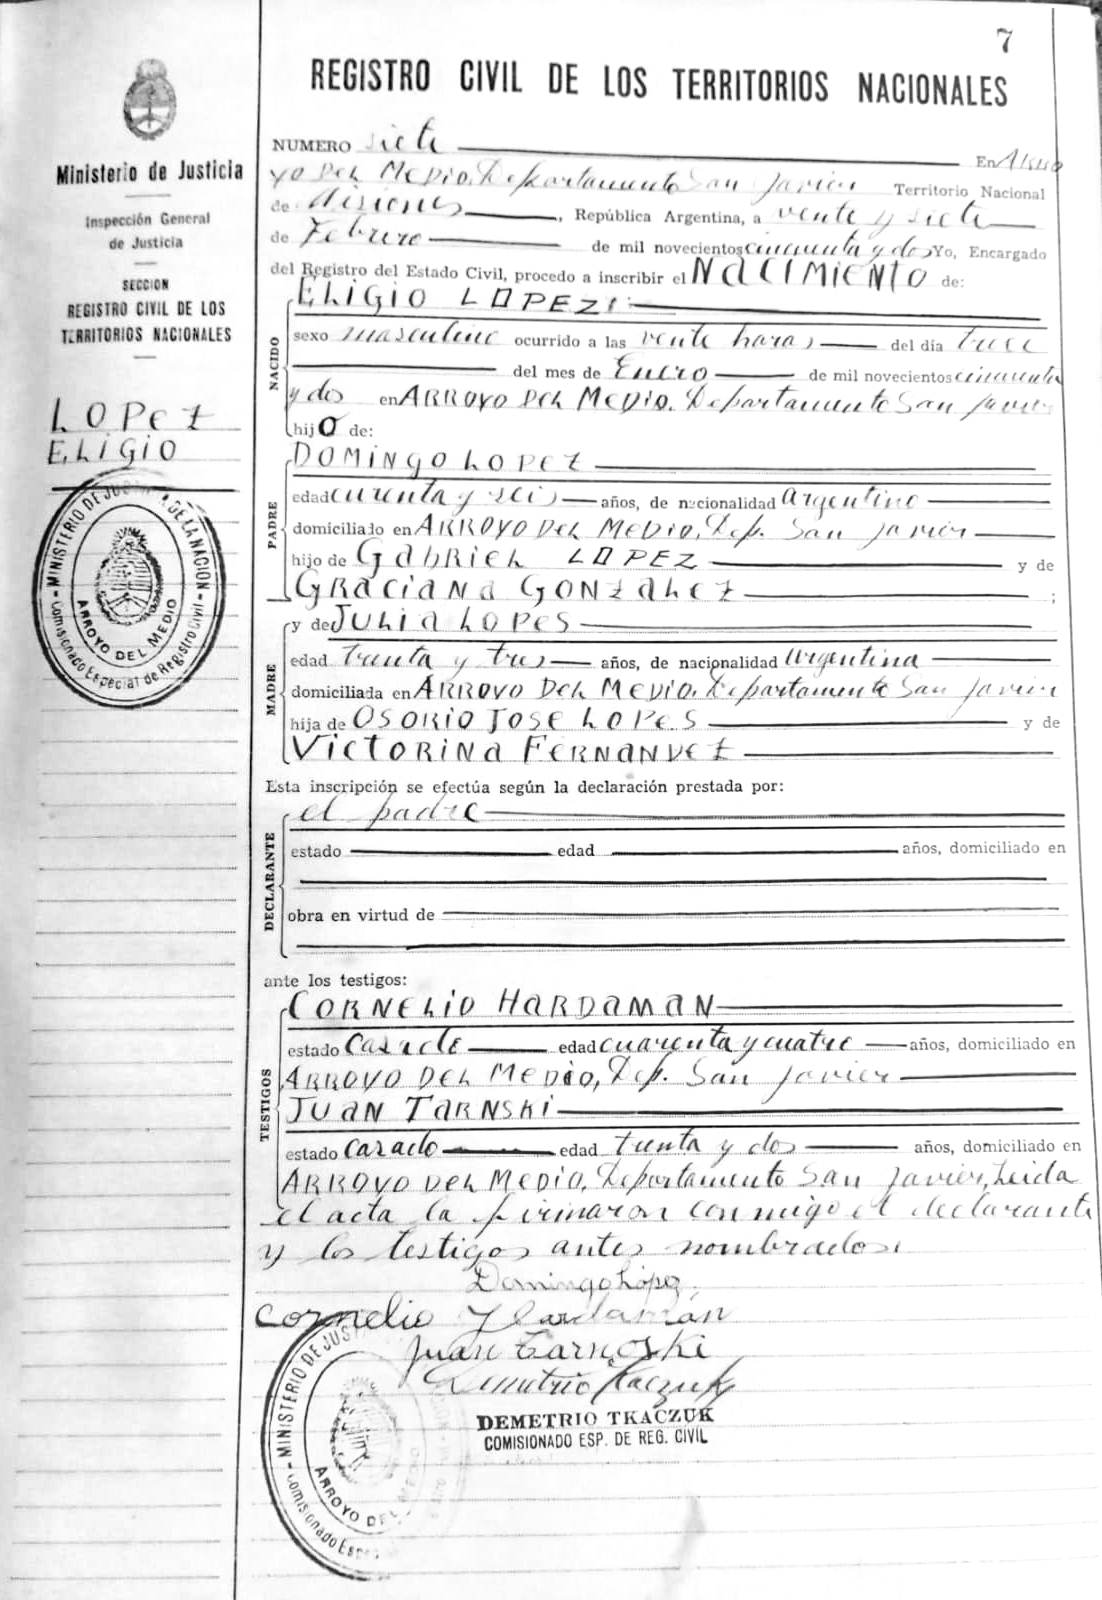 7
REGISTRO CIVIL DE LOS TERRITORIOS NACIONALES
Ministerio de Justicia
Inspección General
de Justicia
SECCION
REGISTRO CIVIL DE LOS
TERRITORIOS NACIONALES
LOPEZ
ELIGIO
MINISTERIO DE JUSTICIA DE LA NACION
ARROYO DEL MEDIO
Comisionado Especial de Registro Civil
NUMERO siete En Arro
yo Del Medio, Departamento San Javier Territorio Nacional
de Misiones, República Argentina, a vente y siete
de Febrero de mil novecientos cincuenta y dos Yo, Encargado
del Registro del Estado Civil, procedo a inscribir el NACIMIENTO de:
NACIDO
ELIGIO LOPEZ
sexo masculino ocurrido a las vente horas del día trece
del mes de Enero de mil novecientos cincuenta
y dos en ARROYO DEL MEDIO, Departamento San Javier
hijo de:
PADRE
DOMINGO LOPEZ
edad curenta y seis años, de nacionalidad argentino
domiciliado en ARROYO DEL MEDIO, Dep. San Javier
hijo de GABRIEL LOPEZ y de
GRACIANA GONZALEZ ;
MADRE
y de JULIA LOPES
edad trenta y tres años, de nacionalidad argentina
domiciliada en ARROYO DEL MEDIO, Departamento San Javier
hija de OSORIO JOSE LOPES y de
VICTORINA FERNANDEZ
Esta inscripción se efectúa según la declaración prestada por:
DECLARANTE
el padre
estado edad años, domiciliado en
obra en virtud de
ante los testigos:
TESTIGOS
CORNELIO HARDAMAN
estado casado edad cuarenta y cuatro años, domiciliado en
ARROYO DEL MEDIO, Dep. San Javier
JUAN TARNSKI
estado casado edad trenta y dos años, domiciliado en
ARROYO DEL MEDIO, Departamento San Javier, Leida
el acta la firmaron conmigo el declarante
y los testigos antes nombrados.
Domingo López
Cornelio Hardaman
Juan Tarnoski
Demetrio Tkaczuk
DEMETRIO TKACZUK
COMISIONADO ESP. DE REG. CIVIL
MINISTERIO DE JUS
ARROYO DEL
Comisionado Espe